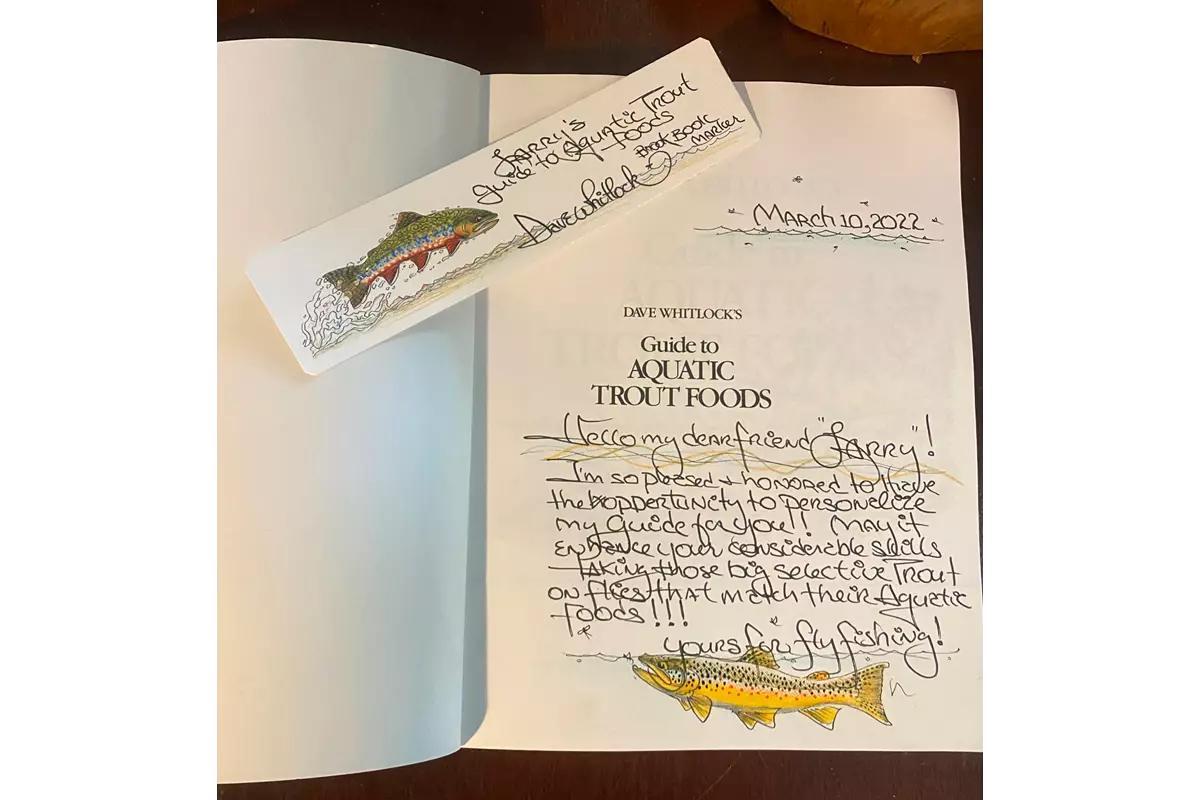 Larry's
Guide to Aquatic Trout
Foods
Brook Book
Marker
Dave Whitlock
March 10, 2022
DAVE WHITLOCK'S
Guide to
AQUATIC
TROUT FOODS
Hello my dear friend "Larry"!
I'm so pleased & honored to have
the opportunity to personelize
my Guide for you!! May it
enhance your considerable skills
taking those big selective Trout
on flies that match their Aquatic
Foods!!!
Yours for fly fishing!